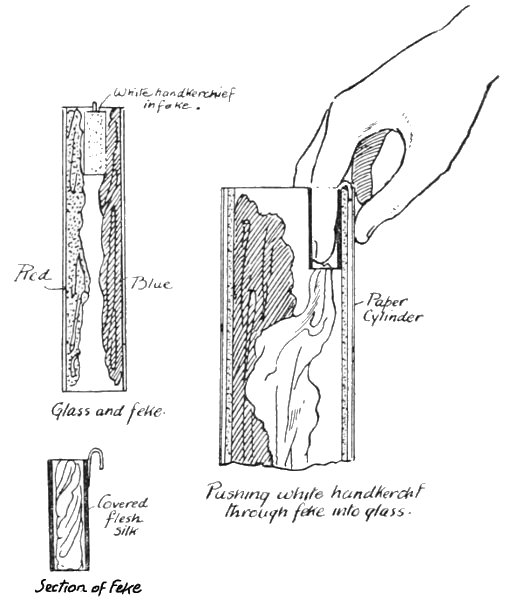 White handkerchief
in feke.
Red
Blue
Glass and feke.
Paper
Cylinder
Pushing white handkercht
through feke into glass.
Covered
flesh
silk
Section of Feke